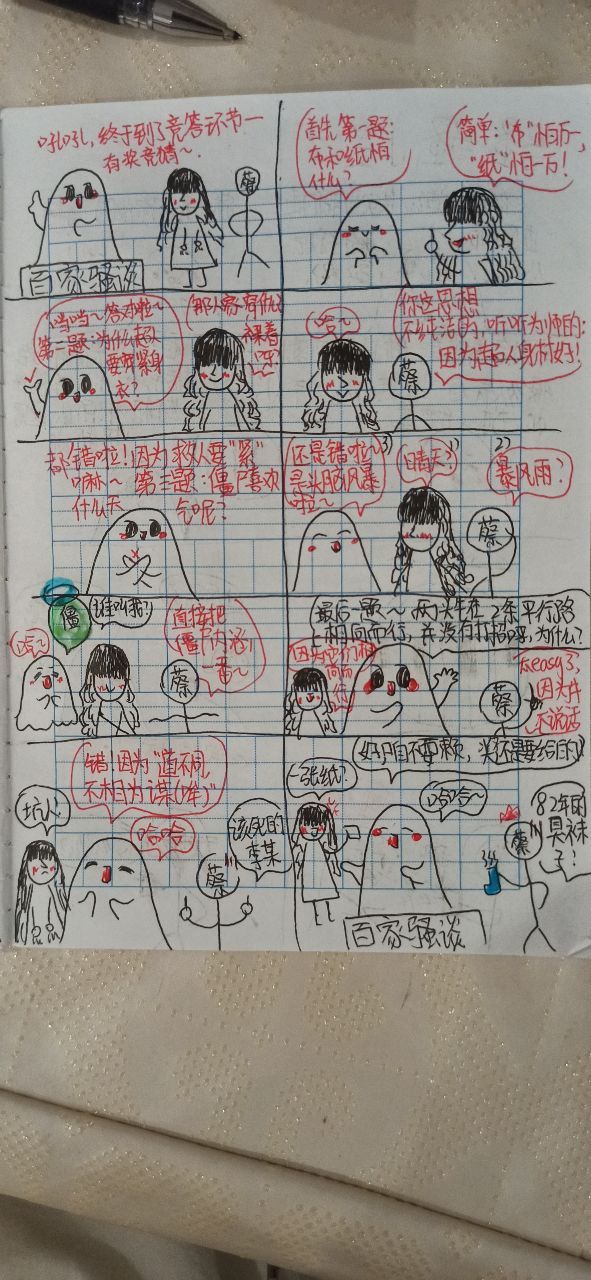 叽叽，终于到了竞答环节—
有奖竞猜～
蔡
百家骚谈
首先第一题：
布和纸怕
什么？
简单："布"怕万一，
"纸"怕一万！
当当～答对啦～
第二题：为什么超人
要穿紧身
衣？
那人家穿什么？
裸着
呀？
哈～
你这思想
不纯洁的，听听为帅的：
因为超人身材好！
蔡
都错啦！因为救人要"紧"
嘛～ 第三题：僵尸喜欢
什么天
气呢？
还是错啦～
是头脑风暴
啦～
3)
晴天？
1)
2)
暴风雨？
蔡
僵
谁叫我？
直接把
僵尸内涵
一番～
蔡
最后一题～ 两头牛在2条平行路
上相向而行，并没有打招呼，为什么？
因为它们相
向而
行
太easy了，
因为牛
不说话
蔡
错，因为"道不同，
不相为谋(哞)"
坑人
哈哈
该死的
李某
蔡
好啦不要赖，奖还是要给的
一张纸？
哈哈～
82年的
臭袜
子？
蔡
百家骚谈